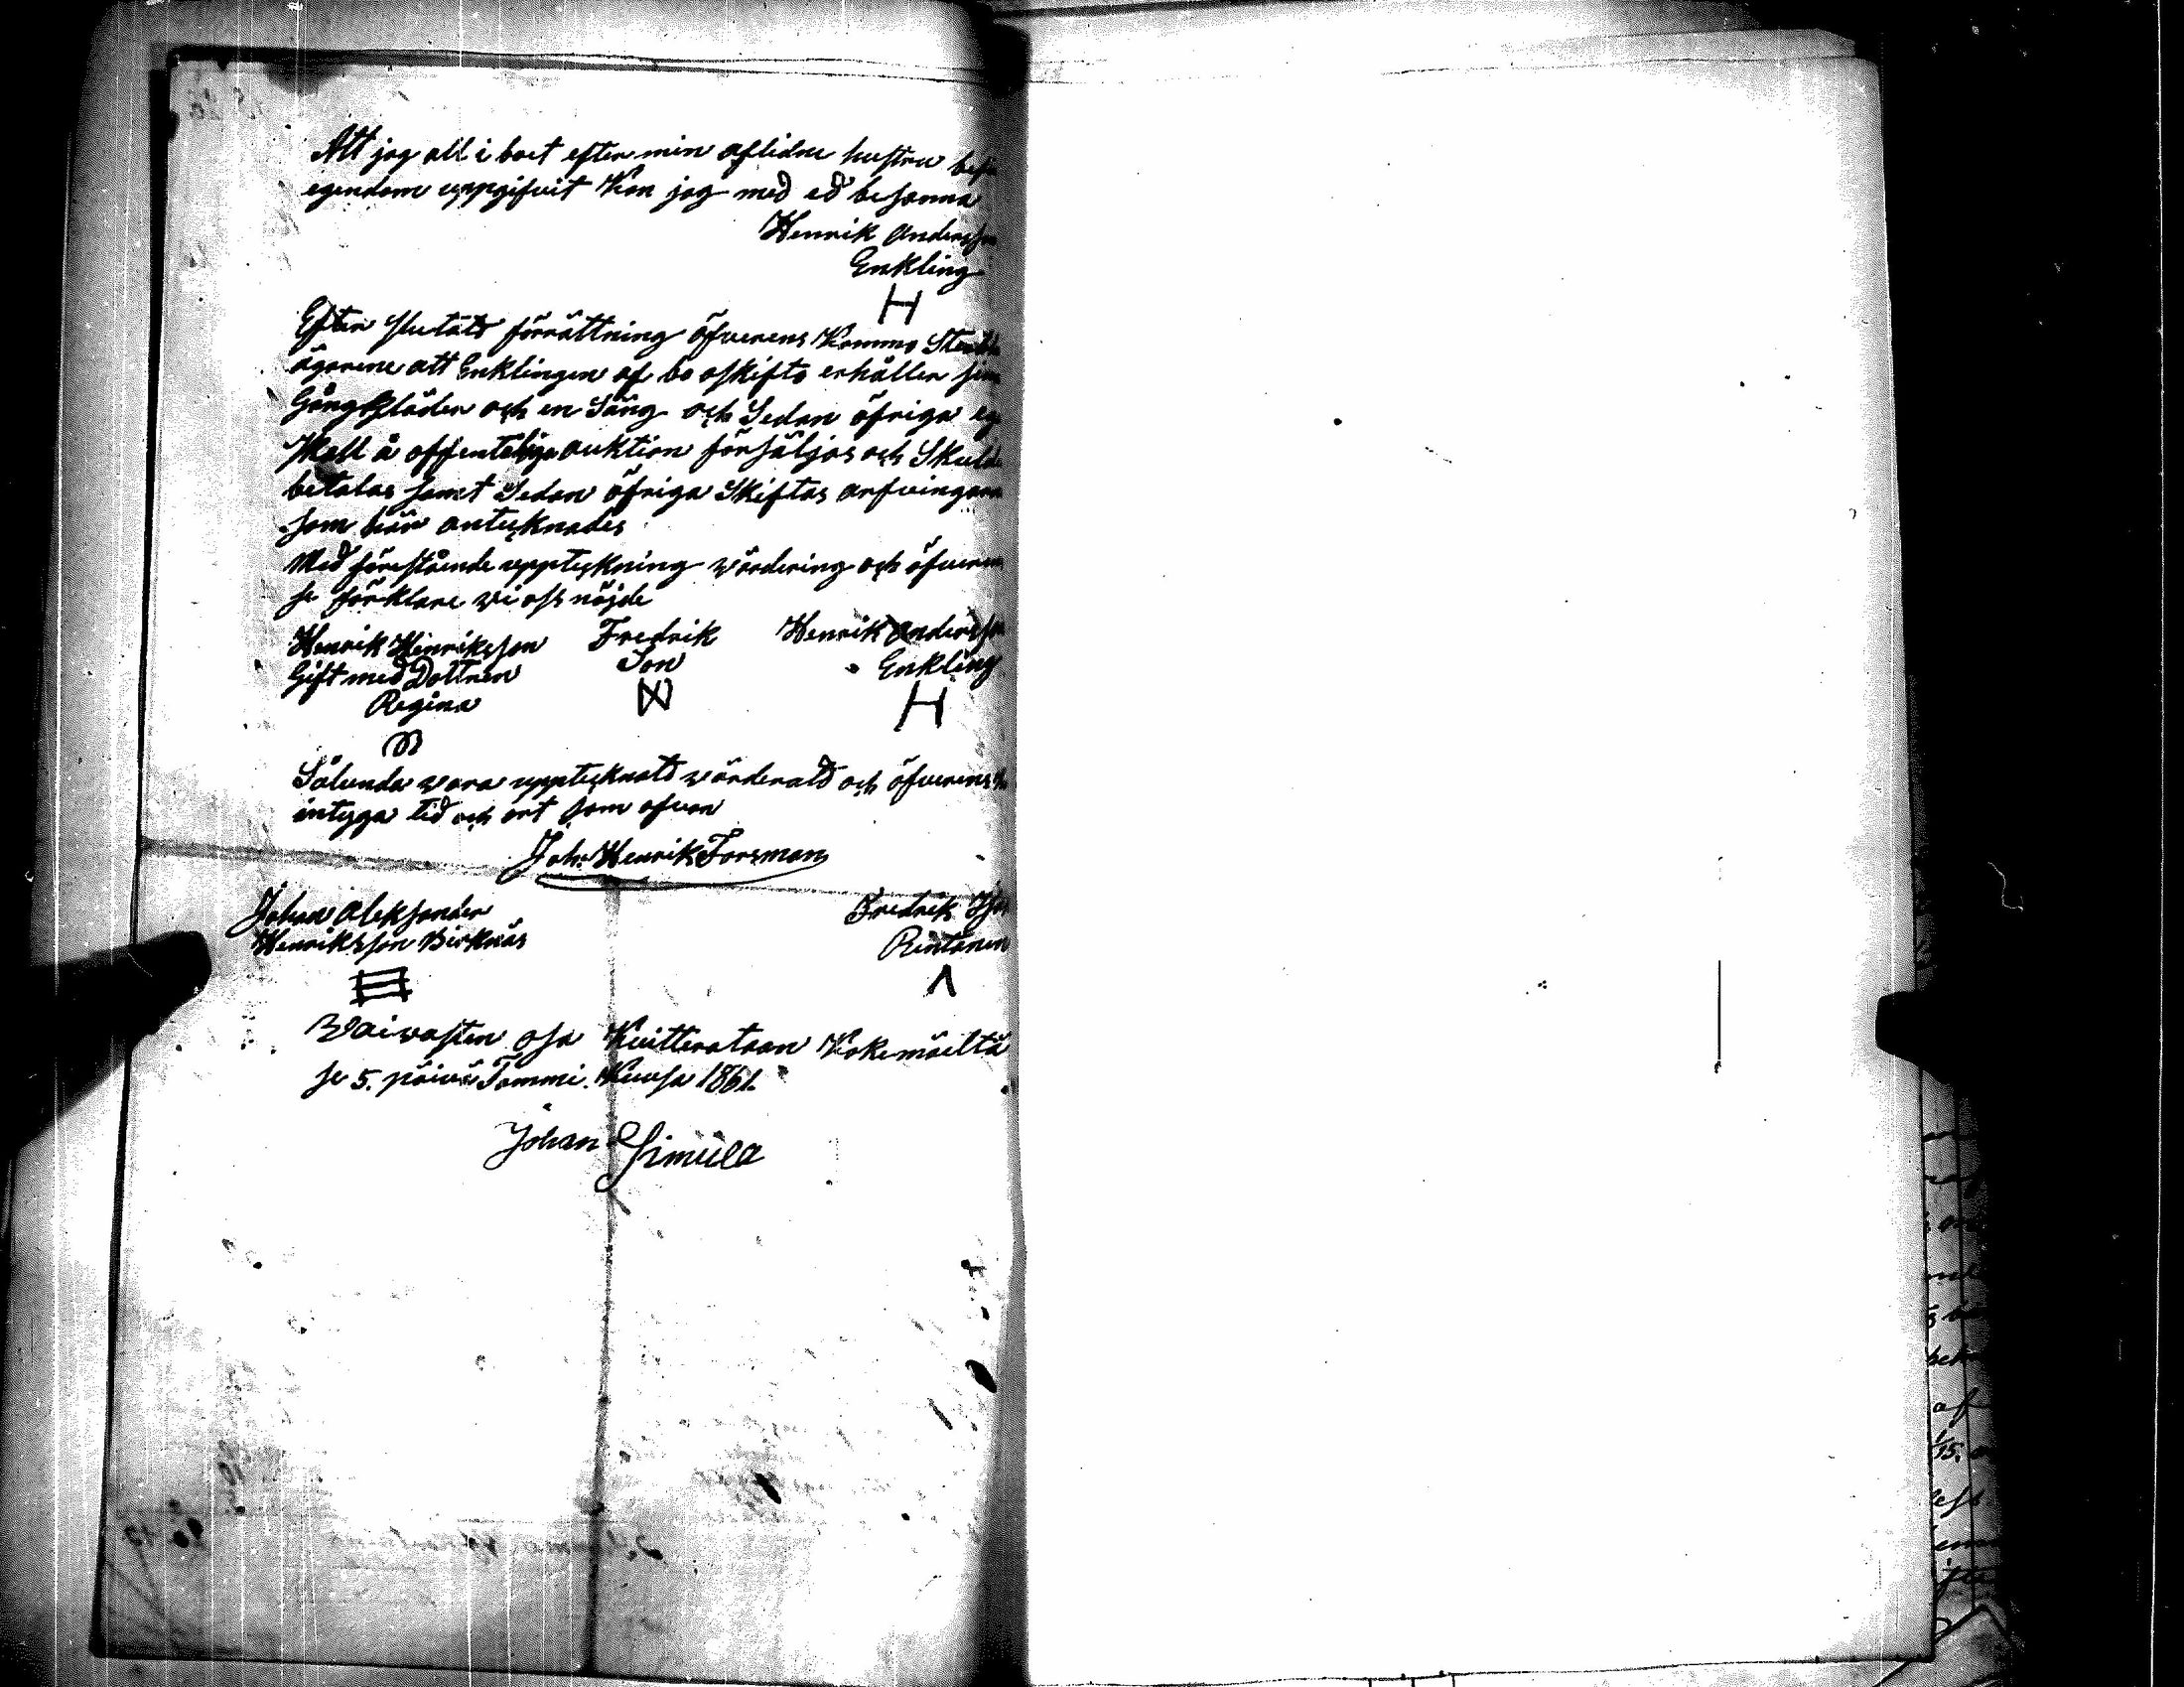 Att jag all i boet efter min aflidne hustru
egendom uppgifvit Kan jag med ed besanna
Henrik Andersson
Enkling
H
Efter slutatd förrättning öfverens Kommo
ägarene att Enklingen af bo oskifto erhåller sina
Gångkläder och en Säng och Sedan öfriga
Skall å offenteliga auktion försäljas och
betalas samt Sedan öfriga Skiftas arfvingarna
som här antecknades
Med förestående uppteckning wärdering och
se förklare wi oss nöjde
Henrik Henriksson Fredrik Henrik Andersson
Gift med Dottren Son Enkling
Regina H
Sålunda wara upptecknatd wärderatd och
intyga tid och ort som ofvan
Joh. Henrik Forsman
Johan Aleksander Fredrik
Henriksson Birknäs Rintanen
Waivasten osa Kuitterataan Kokemäeltä
se 5. päivä Tammi. Kuusa 1861.
Johan Simula